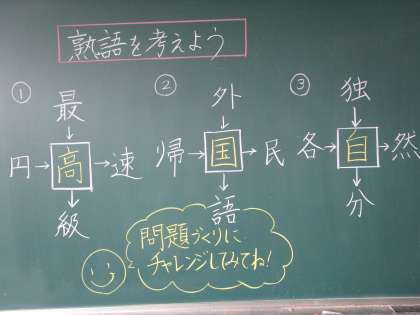 熟語を考えよう
①
最
円→高→速
級
②
外
帰→国→民
語
③
独
各→自→然
分
問題づくりに
チャレンジしてみてね!